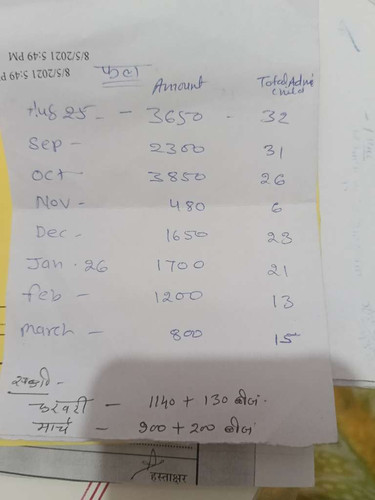 8/5/2021 5:49 PM
8/5/2021 5:49 P
फल
Amount Total Adm Child
Aug 25 - - 3650 - 32
Sep - 2300 31
Oct - 3850 26
Nov - 480 6
Dec - 1650 23
Jan - 26 1700 21
feb - 1200 13
march - 800 15
फरवरी - 1140 + 130
मार्च - 900 + 200
हस्ताक्षर